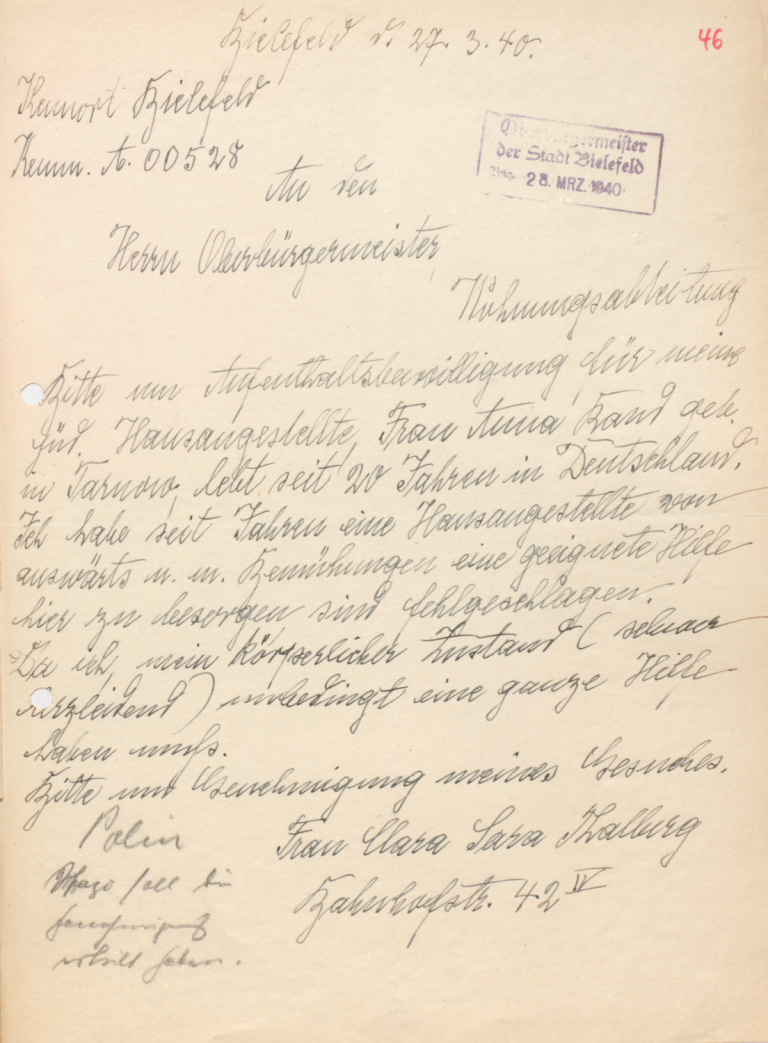 Bielefeld d. 27. 3. 40.
46
Kennort Bielefeld
Kennn. A. 00528
Oberbürgermeister
der Stadt Bielefeld
Eing. 28. MRZ. 1940
An den
Herrn Oberbürgermeister,
Wohnungsabteitung
Bitte um Aufenthaltsbewilligung für meine
jüd. Hausangestellte, Frau Anna Band geb.
in Tarnow, lebt seit 20 Jahren in Deutschland.
Ich habe seit Jahren eine Hausangestellte von
auswärts u. m. Bemühungen eine geeignete Hilfe
hier zu besorgen sind fehlgeschlagen.
Da ich, mein körperlicher Zustand (schwer
herzleidend) unbedingt eine ganze Hilfe
haben muß.
Bitte um Genehmigung meines Gesuches.
Frau Clara Sara Thalberg
Bahnhofstr. 42 IV
Polin
soll die
Genehmigung
erteilt haben.